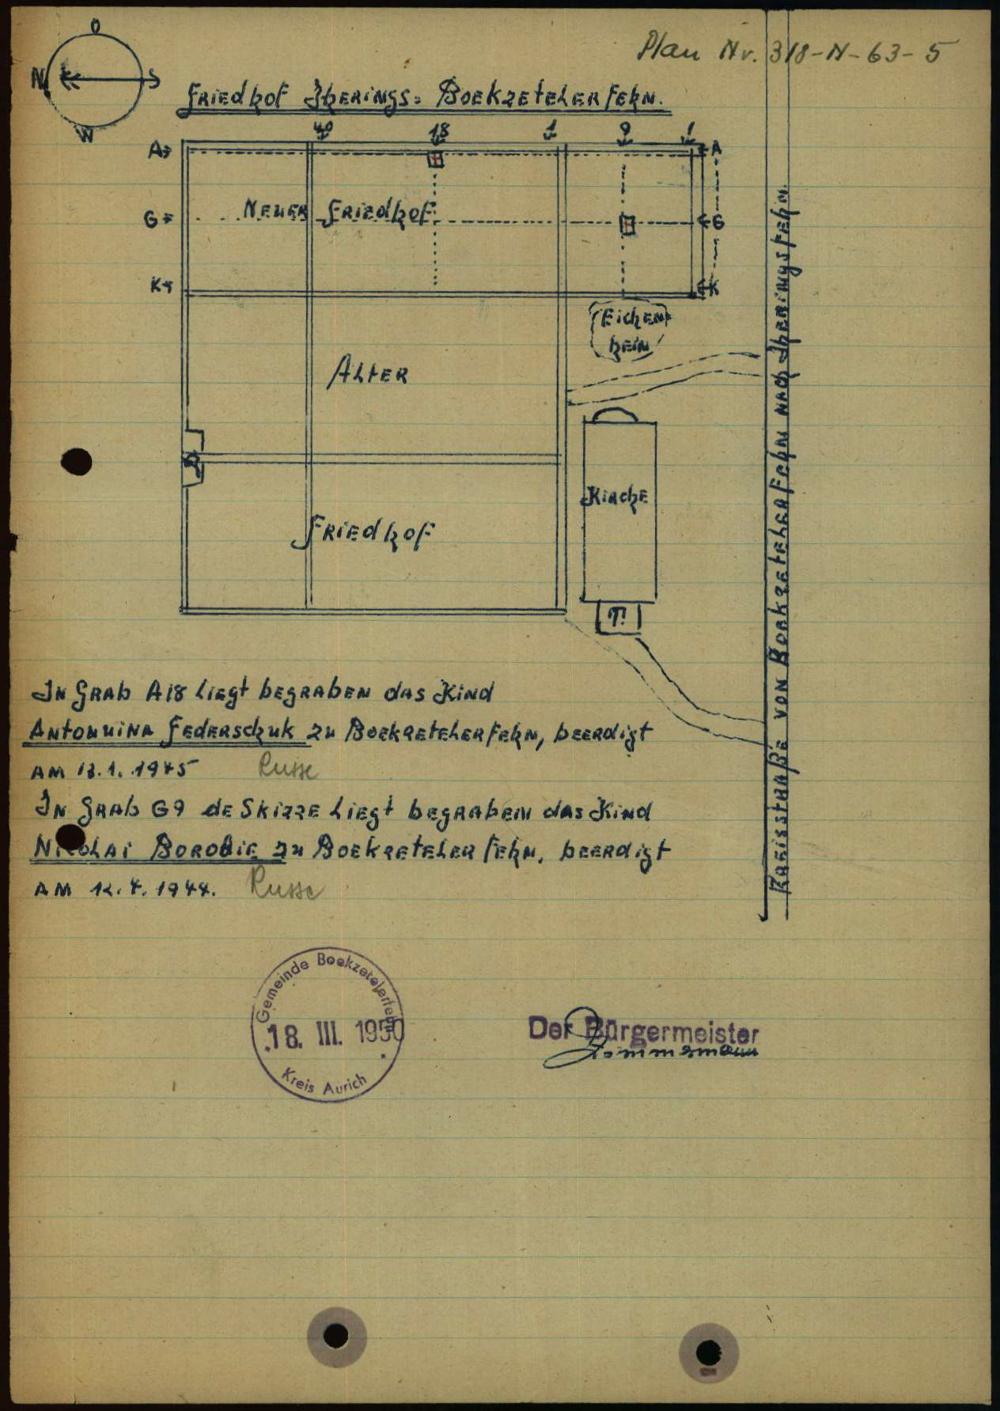 Plan Nr. 318-N-63-5
O
N S
W
Friedhof Iherings= Boekzetelerfehn.
40 18 1 9 1
A A
Neuer Friedhof
G G
K K
Eichen
hein
Alter
Kirche
Friedhof
T.
Kreisstraße von Boekzetelerfehn nach Iheringsfehn.
In Grab A18 liegt begraben das Kind
Antonnina Federschuk zu Boekzetelerfehn, beerdigt
am 1945 Russe
In Grab G9 de Skizze liegt begraben das Kind
Nikolai Borodie zu Boekzetelerfehn, beerdigt
am 12.4.1944. Russe
Gemeinde Boekzetelerfehn
18. III. 1950
Kreis Aurich
Der Bürgermeister
Zimmermann